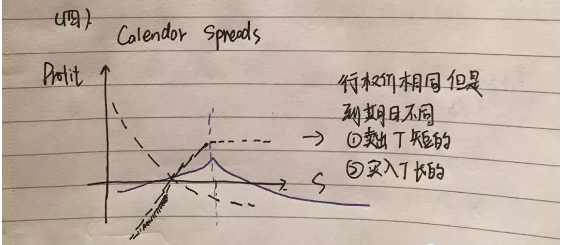 (四)
Calendor Spreads
Profit
行权价相同但是
到期日不同
→ ①卖出T短的
②买入T长的
S